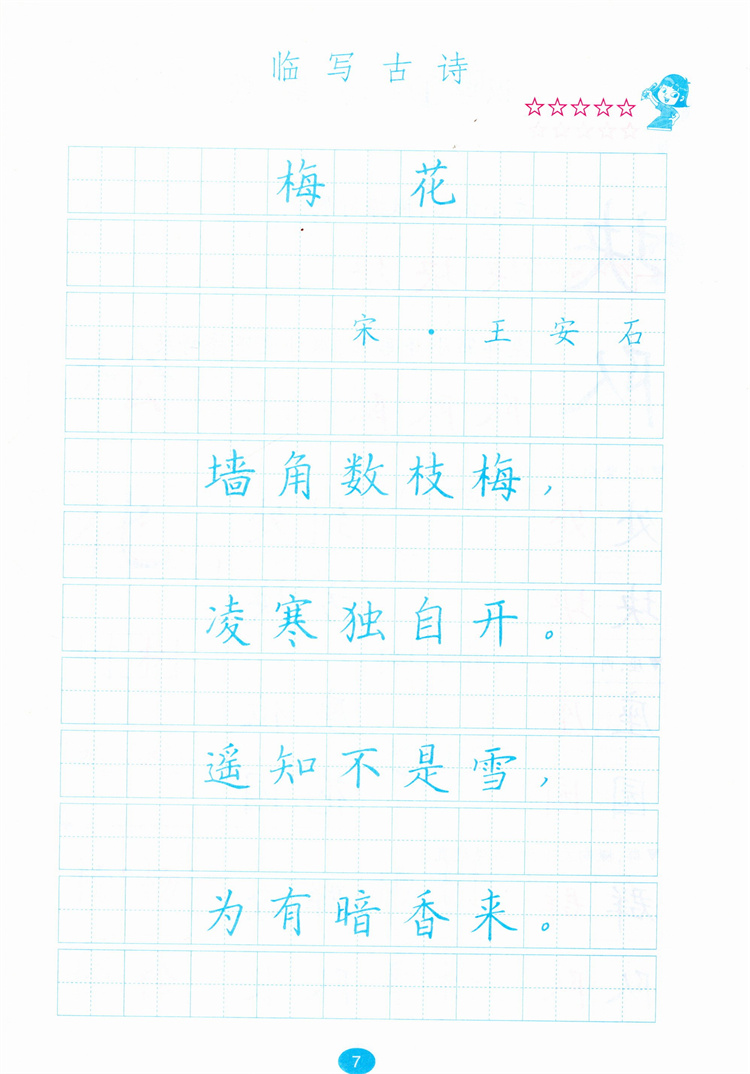 临写古诗
梅花
宋·王安石
墙角数枝梅，
凌寒独自开。
遥知不是雪，
为有暗香来。
7